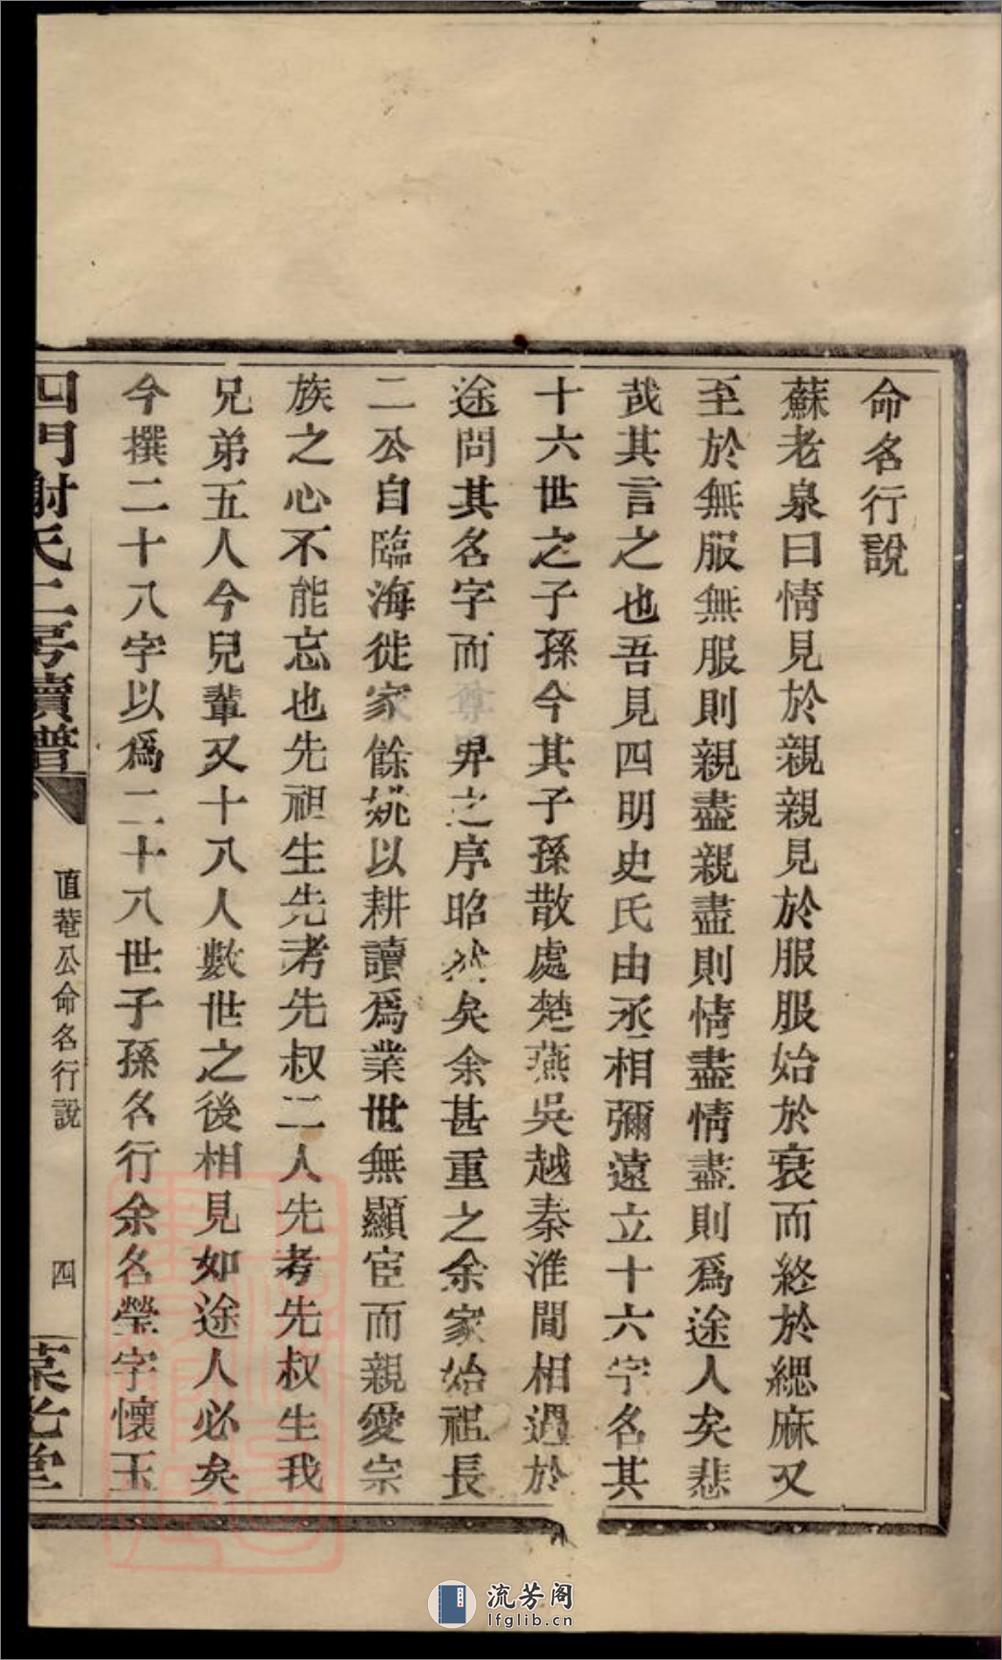 命名行說
蘇老泉曰情見於親親見於服服始於衰而終於緦麻又
至於無服無服則親盡親盡則情盡情盡則爲途人矣悲
哉其言之也吾見四明史氏由丞相彌遠立十六字名其
十六世之子孫今其子孫散處楚燕吳越秦淮間相遇於
途問其名字而尊卑之序昭然矣余甚重之余家始祖長
二公自臨海徙家餘姚以耕讀爲業世無顯宦而親愛宗
族之心不能忘也先祖生先考先叔二人先考先叔生我
兄弟五人今兒輩又十八人數世之後相見如途人必矣
今撰二十八字以爲二十八世子孫名行余名瑩字懷玉
四門謝氏二房續譜
直菴公命名行說
四
流芳阁
lfglib.cn